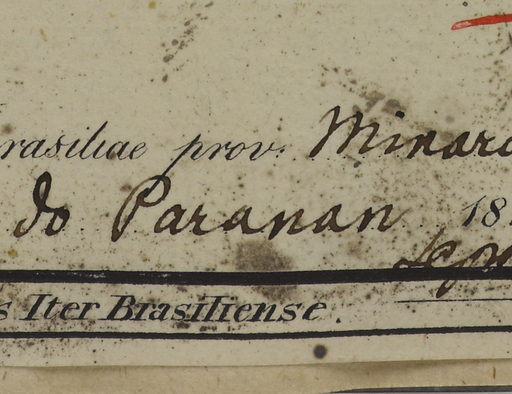 rasiliae prov. Minaru
do Paranan 18
Sept
s Iter Brasiliense.